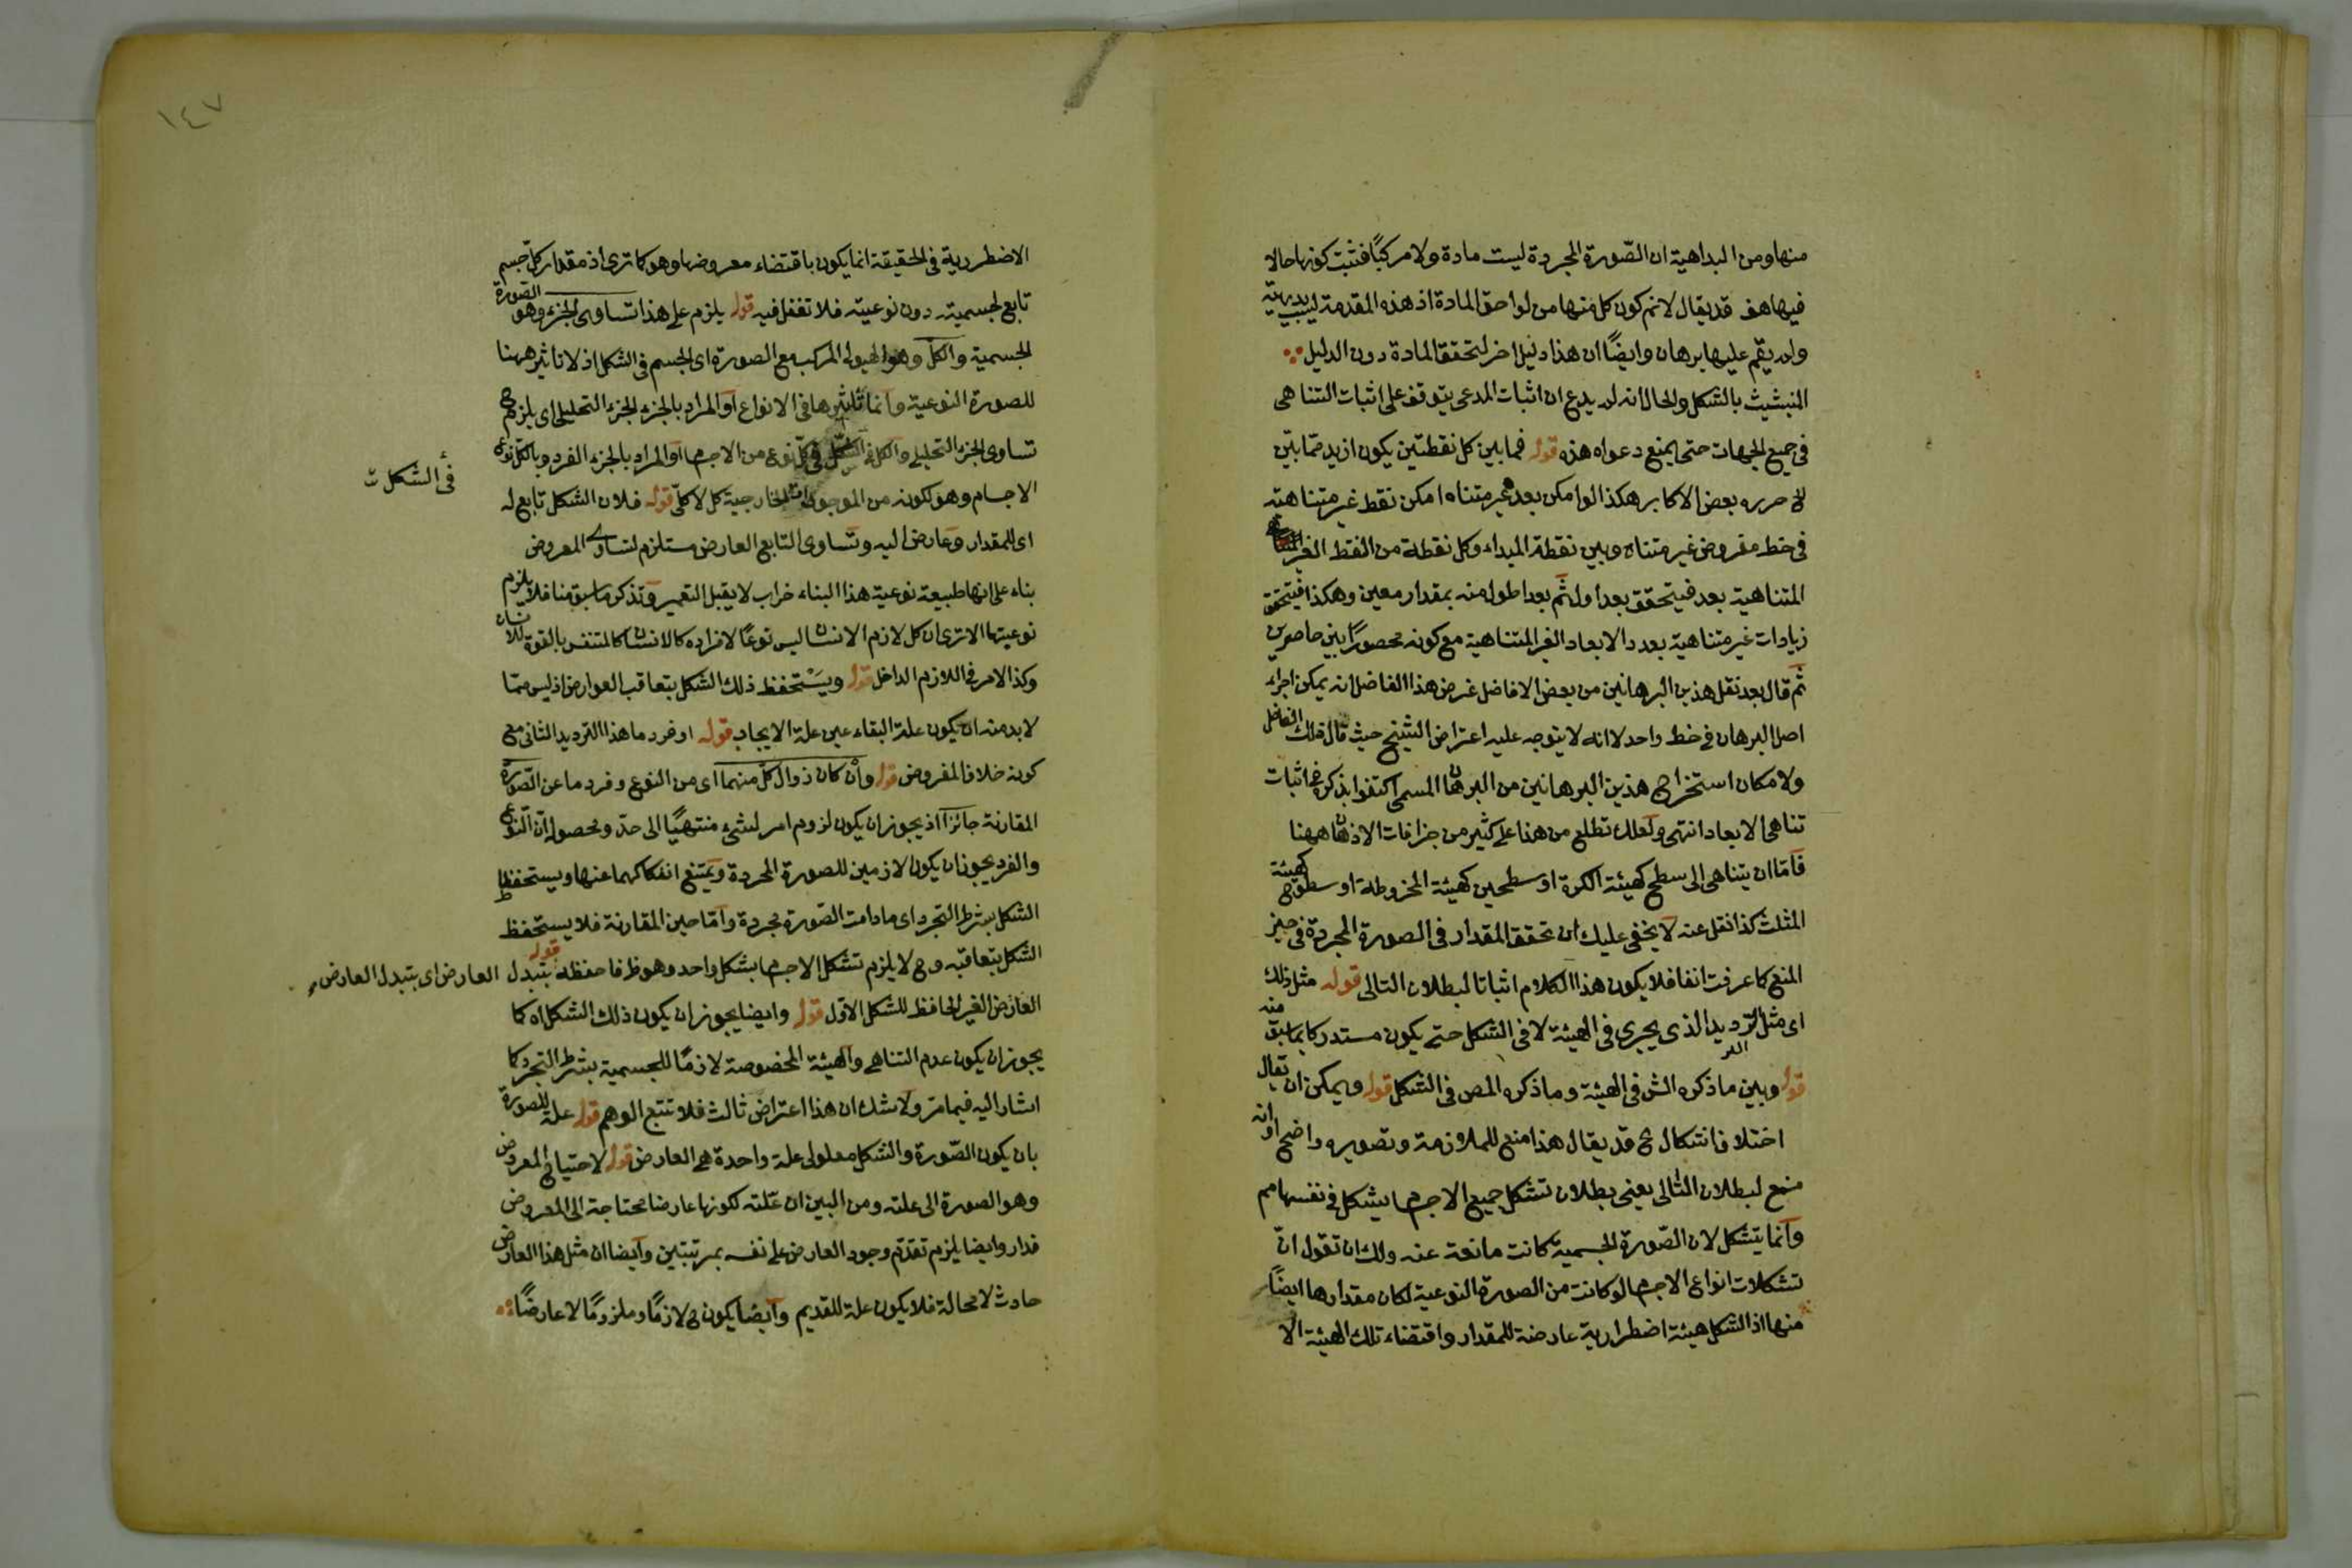 منها ومن البداهية ان الصّورة المجردة ليست مادة ولا مركبًا فثبت كونها حالا
فيها هف قد يقال لانم كون كل منها من لواحق المادة اذ هذه المقدمة ليست بديهية
ولم يقم عليها برهان وايضًا ان هذا دليل اخر لتحقق المادة دون الدليل
المتشبث بالشكل والحال انه لم يدع ان اثبات المدعى يتوقف على اثبات التناهى
فى جميع الجهات حتى يمنع دعواه هذه قوله فما بين كل نقطتين يكون ازيد ممّا بين
الخ حرره بعض الاكابر هكذا لو امكن بعد غير متناه امكن نقط غير متناهية
فى خط مفروض غير متناه وبين نقطة المبداء وكل نقطة من النقط الغير
المتناهية بعد فيتحقق بعد اول ثم بعد اطول منه بمقدار معين وهكذا فيتحقق
زيادات غير متناهية بعدد الابعاد الغير المتناهية مع كونه محصورًا بين حاصرين
ثم قال بعد نقل هذين البرهانين من بعض الافاضل غرض هذا الفاضل انه يمكن اجراء
اصل البرهان فى خط واحد لا انه لا يتوجه عليه اعتراض الشيخ حيث قال ذلك الفاضل
ولامكان استخراج هذين البرهانين من البرهان المسمى اكتفوا بذكره فى اثبات
تناهى الابعاد انتهى ولعلك تطلع من هنا على كثير من جزافات الاذهان ههنا
فامّا ان يتناهى الى سطح كهيئة الكرة او سطحين كهيئة المخروطة او سطوح كهيئة
المثلث كذا نقل عنه لا يخفى عليك ان تحقق المقدار فى الصورة المجردة فى حيز
المنع كما عرفت انفا فلا يكون هذا الكلام اثباتا لبطلان التالى قوله مثل ذلك
اى مثل الترديد الذى يجرى فى الهيئة لا فى الشكل حتى يكون مستدركا بما سبق منه
قوله وبين ما ذكره الش فى الهيئة وما ذكره المص فى الشكل قوله ويمكن ان يقال
اختلاف اشكال الخ قد يقال هذا منع للملازمة وتصويره واضح او انه
منع لبطلان التالى يعنى بطلان تشكل جميع الاجسام بشكل فى نفسها مم
وانما يتشكل لان الصّورة الجسمية كانت مانعة عنه ولك ان تقول انّ
تشكلات انواع الاجسام لو كانت من الصورة النوعية لكان مقدارها ايضًا
منها اذ الشكل هيئة اضطرارية عارضة للمقدار واقتضاء تلك الهيئة الا
١٤٧
الاضطررية فى الحقيقة انما يكون باقتضاء معروضها وهو كما ترى اذ مقدار كل جسم
تابع لجسميته دون نوعيته فلا تغفل فيه قوله يلزم على هذا تساوى الجزء وهو الصّورة
الجسمية والكل وهو الهيولى المركب مع الصورة اى الجسم فى الشكل اذ لا تاثير ههنا
للصورة النوعية وانما تاثيرها فى الانواع او المراد بالجزء الجزء التحليلى اى يلزم ح
تساوى الجزء التحليلى والكل فى الشكل فى كل نوع من الاجسام او المراد بالجزء الفرد وبالكل نوع
فى الشكل ت
الاجسام وهو لكونه من الموجودات الخارجية كل لا كلّى قوله فلان الشكل تابع له
اى للمقدار وعارض اليه وتساوى التابع العارض مستلزم لتساوى المعروض
بناء على انها طبيعة نوعية هذا البناء خراب لا يقبل التعمير وتذكر ما سبق منا فلا يلزم
نوعيتها الا ترى ان كل لازم الانسان ليس نوعًا لافراده كالانسان كالمتنفس بالقوة للانسان
وكذا الامر فى اللازم الداخل قوله ويستحفظ ذلك الشكل بتعاقب العوارض اذ ليس ممّا
لا بد منه ان يكون علة البقاء عين علة الايجاب قوله او فرد ما هذا الترديد الثانى مع
كونه خلاف المفروض قوله وان كان زوال كل منهما اى من النوع وفرد ما عن الصّورة
المقارنة جائزا اذ يجوز ان يكون لزوم امر لشئ منتهيًا الى حدّ ومحصوله انّ النوع
والفرد يجوز ان يكون لازمين للصورة المجردة ويمتنع انفكاكهما عنها ويستحفظ
الشكل بشرط التجرد اى ما دامت الصّورة مجردة وامّا حين المقارنة فلا يستحفظ
الشكل بتعاقبه وح لا يلزم تشكل الاجسام بشكل واحد وهو ظ فاحفظه قوله بتبدل العارض اى بتبدل العارض
العارض الغير الحافظ للشكل الاوّل قوله وايضا يجوز ان يكون ذلك الشكل اه كما
يجوز ان يكون عدم التناهى والهيئة المخصوصة لازمًا للجسمية بشرط التجرد كما
اشار اليه فيما مرّ ولا شك ان هذا اعتراض ثالث فلا تتبع الوهم قوله علة للصورة
بان يكون الصّورة والشكل معلولى علة واحدة هى العارض قوله لاحتياج المعروض
وهو الصورة الى علته ومن البين ان علّته لكونها عارضا محتاجة الى المعروض
فدار وايضا يلزم تقدّم وجود العارض على نفسه بمرتبتين وايضا ان مثل هذا العارض
حادث لا محالة فلا يكون علة للقديم وايضًا يكون ح لازمًا وملزومًا لا عارضًا